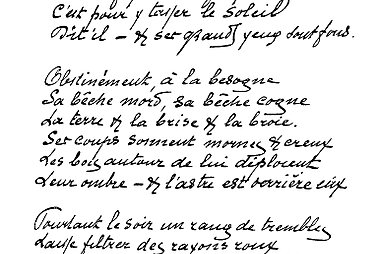 C'est pour y tasser le soleil
Dit il – & ses grands yeux sont fous.
Obstinément, à la besogne
Sa bêche mord, sa bêche cogne
La terre & la brise & la broie.
Ses coups sonnent mornes & creux
Les bois autour de lui déploient
Leur ombre – & l'astre est derrière eux
Pourtant le soir un rang de trembles
Laisse filtrer des rayons roux